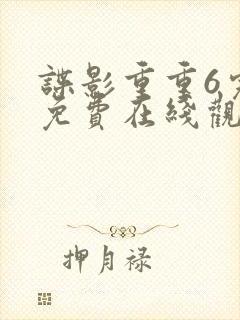 諜影重重6
免費在綫觀
押月禄